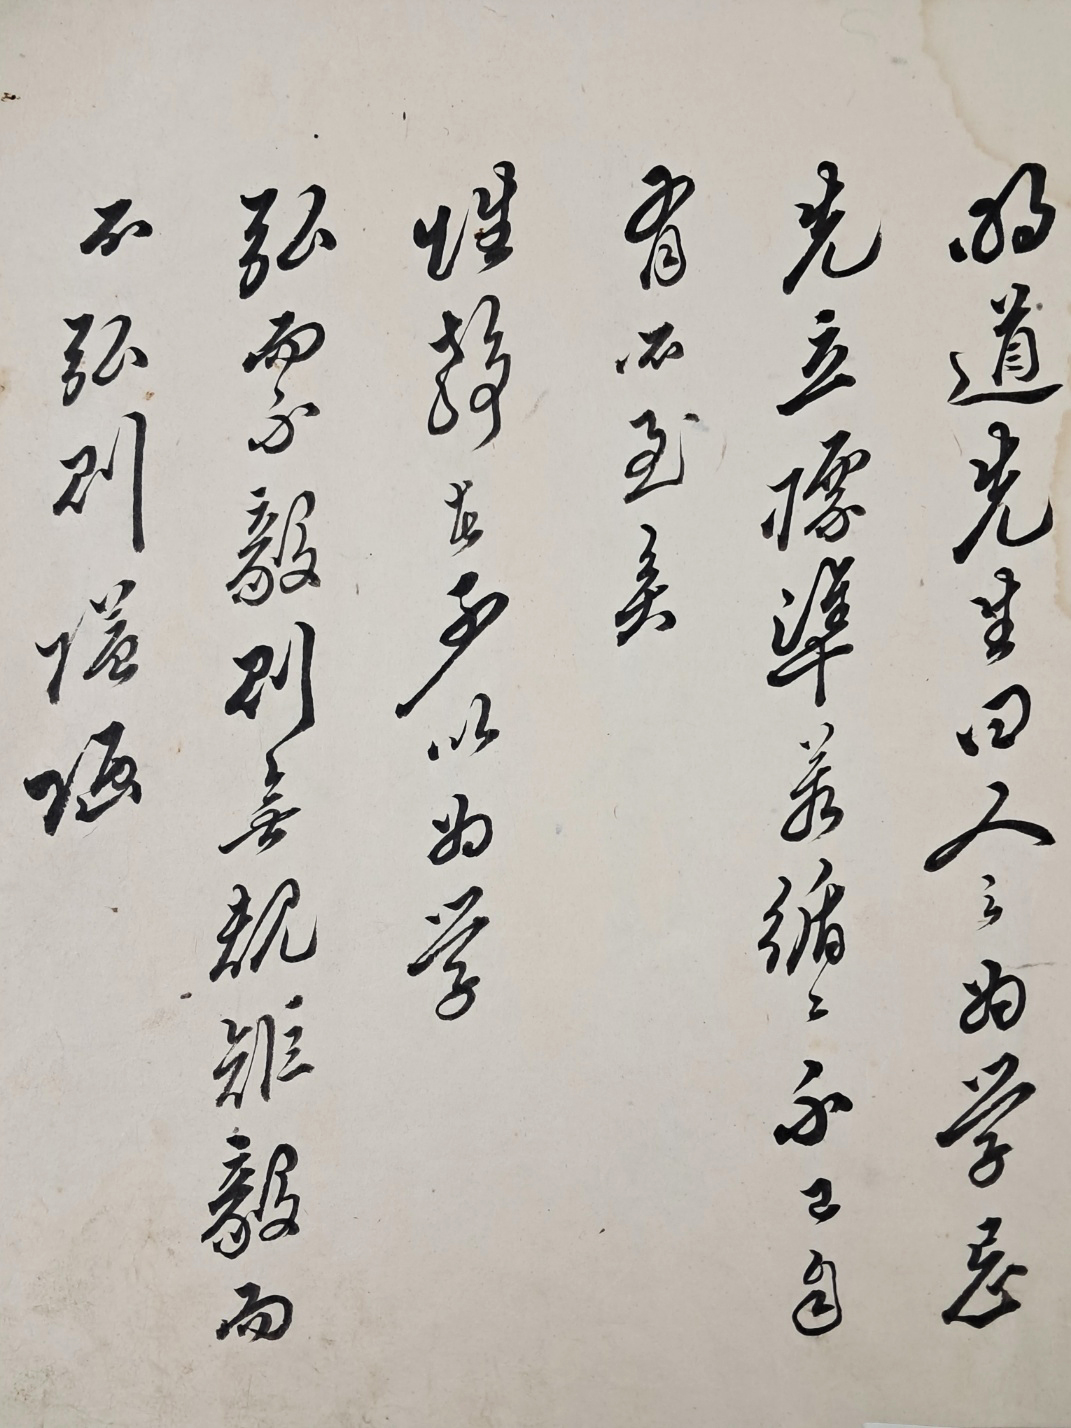 明道先生曰人之為学忌
先立標準若循〻不已自
有所至矣
性静者可以為学
弘而不毅則無規矩毅而
不弘則隘陋